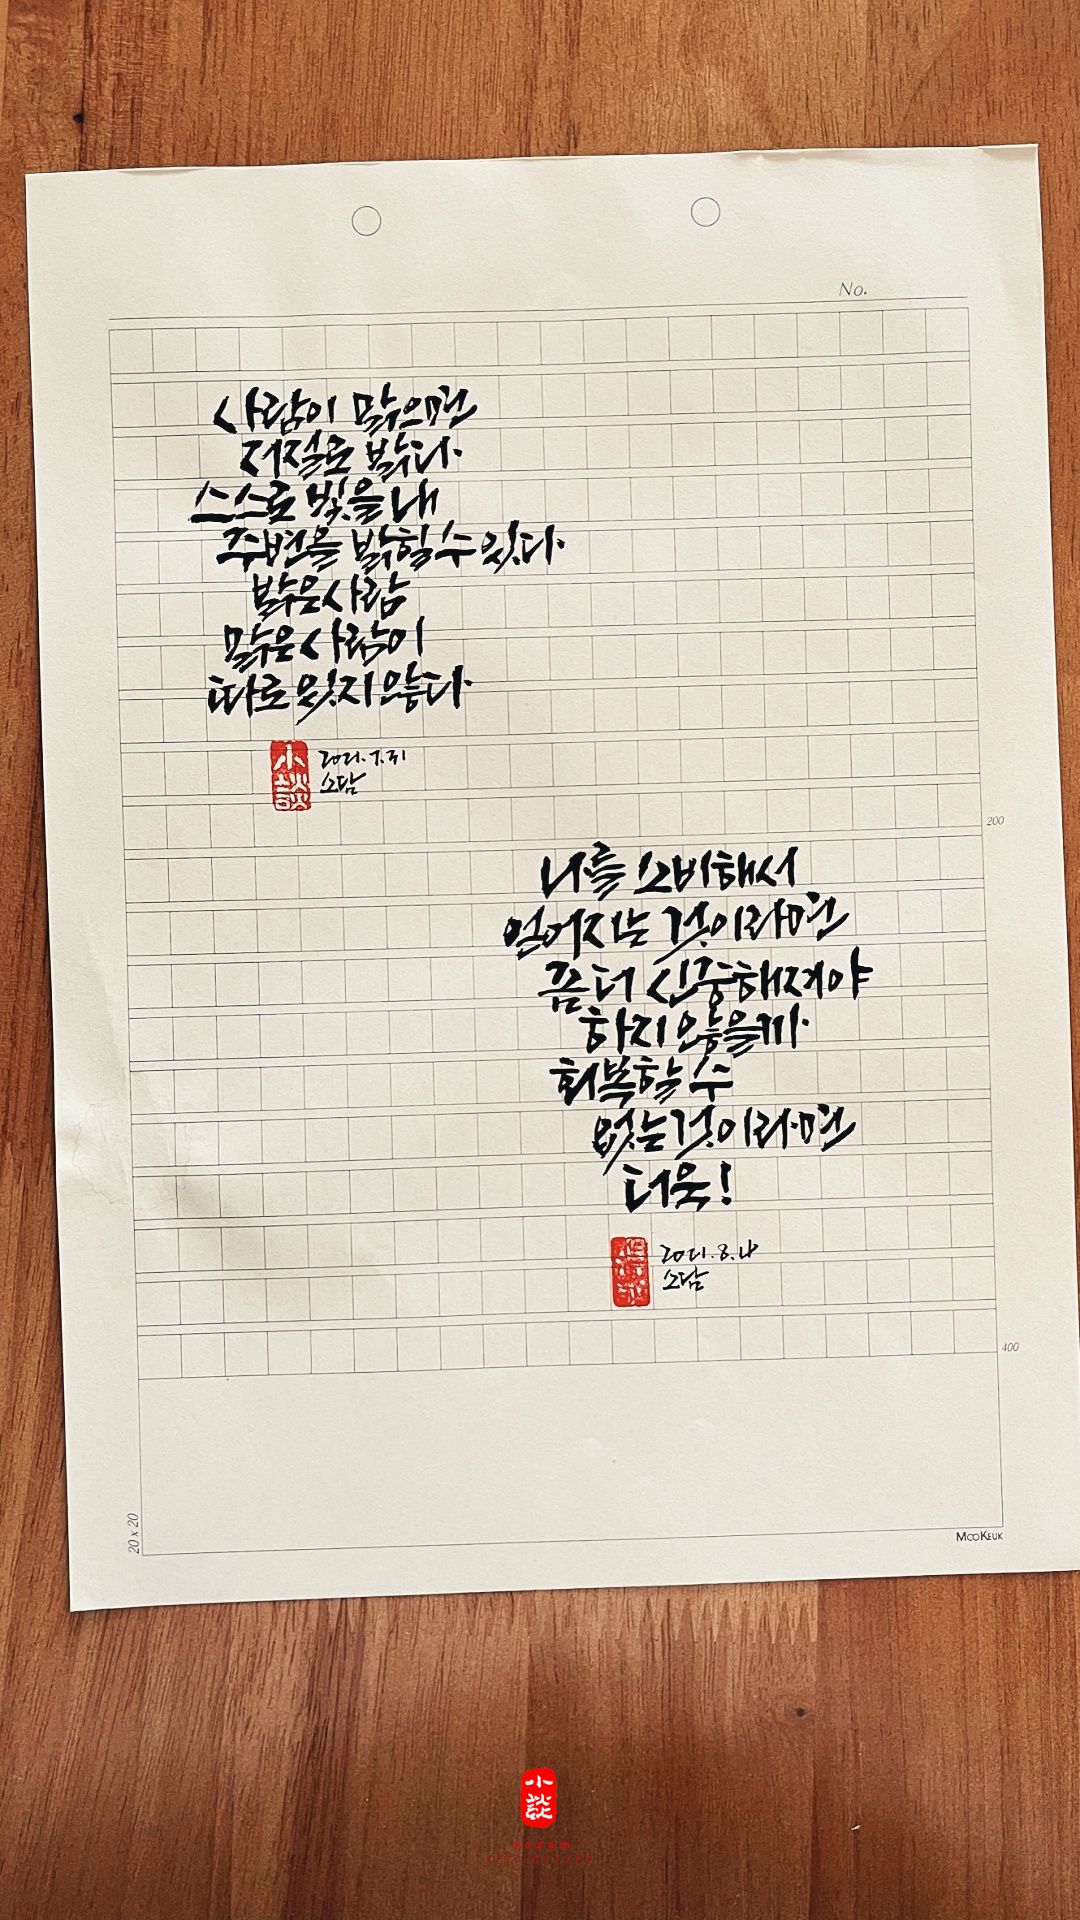 No.
사람이 맑으면
저절로 밝다.
스스로 빛을 내
주변을 밝힐 수 있다.
밝은 사람
맑은 사람이
따로 있지 않다.
小談
2021.7.31
소담
200
나를 소비해서
얻어지는 것이라면
좀 더 신중해져야
하지 않을까.
회복할 수
없는 것이라면
더욱!
2021.8.18
소담
400
20 x 20
MooKeuk
小談
sodam